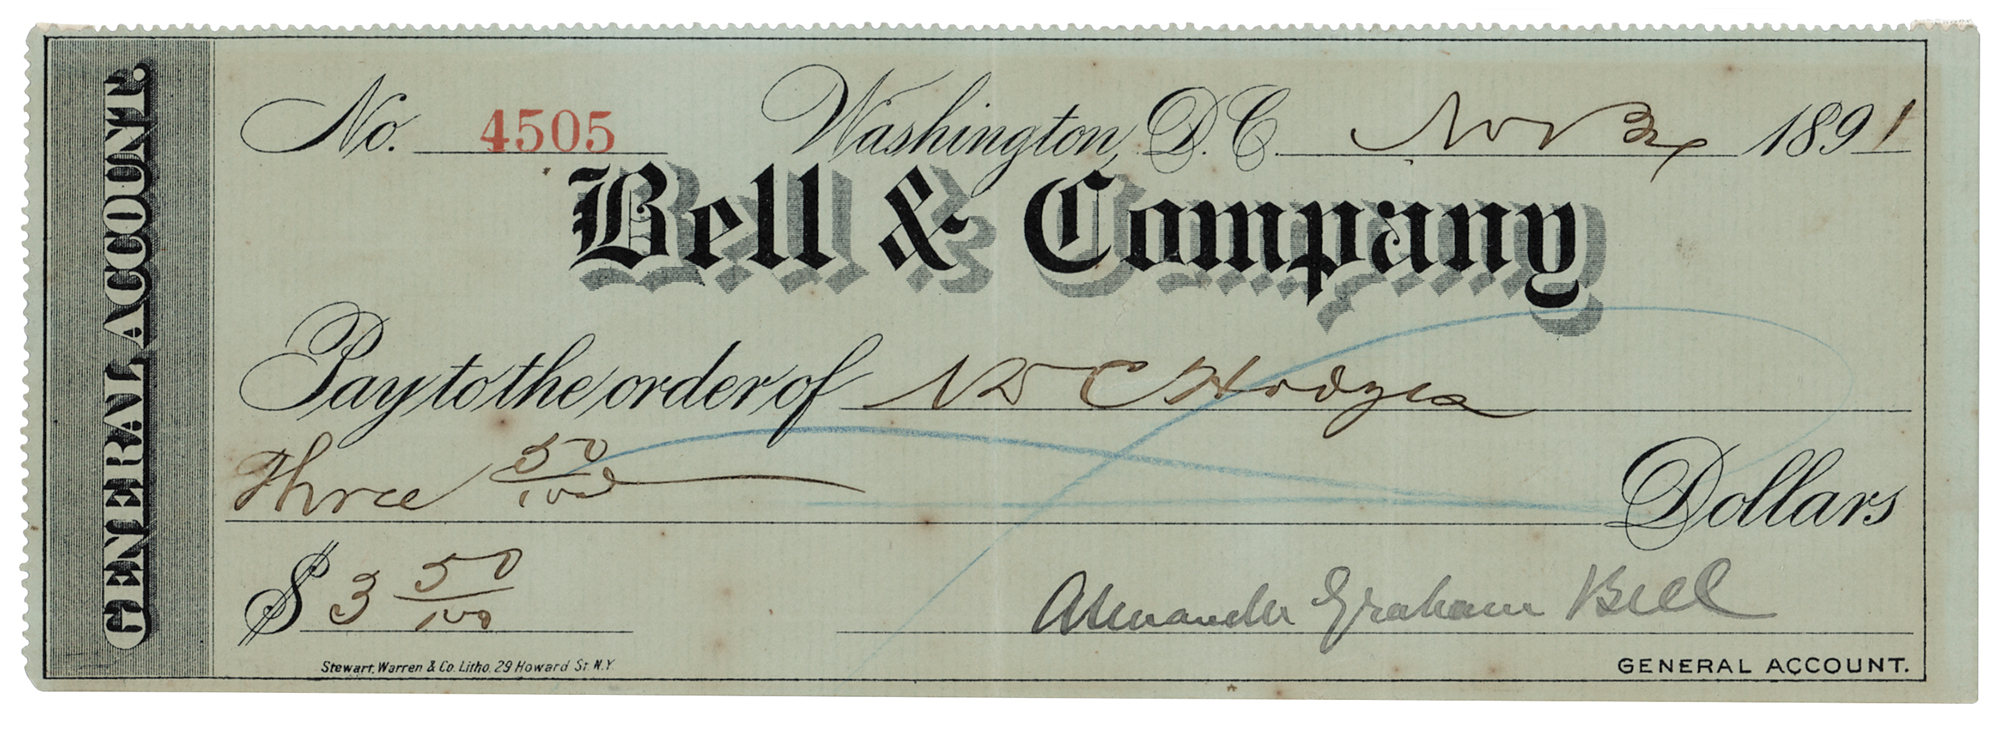 GENERAL ACCOUNT.
No. 4505 Washington, D.C. Nov 1891
Bell & Company
Pay to the order of N D C Hodges
Three 50/100 Dollars
$ 3 50/100 Alexander Graham Bell
Stewart, Warren & Co. Litho. 29 Howard St. N.Y.
GENERAL ACCOUNT.